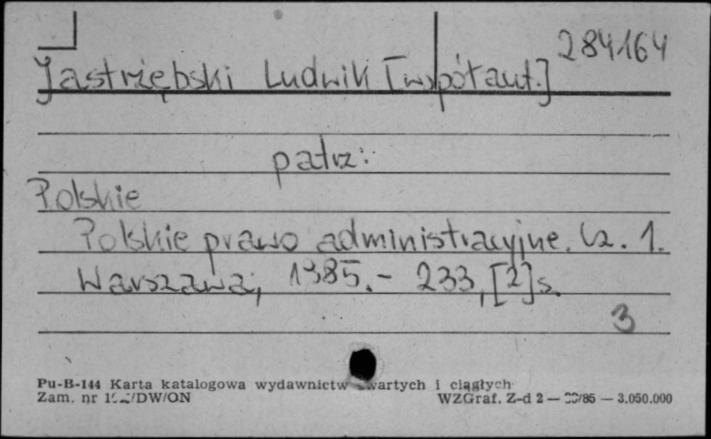 284164
Jastrzębski Ludwik [współaut.]
patrz:
Polskie
Polskie prawo administracyjne. Cz. 1.
Warszawa, 1985. - 233, [2] s.
3
Pu-B-144 Karta katalogowa wydawnictw zwartych i ciągłych
Zam. nr /DW/ON
WZGraf. Z-d 2 — /85 — 3.050.000